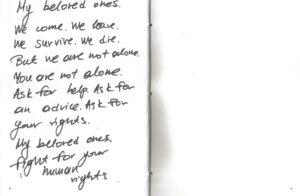 My beloved ones.
We come. We leave.
We survive. We die.
But we are not alone.
You are not alone.
Ask for help. Ask for
an advice. Ask for
your rights.
My beloved ones
fight for your
human
rights